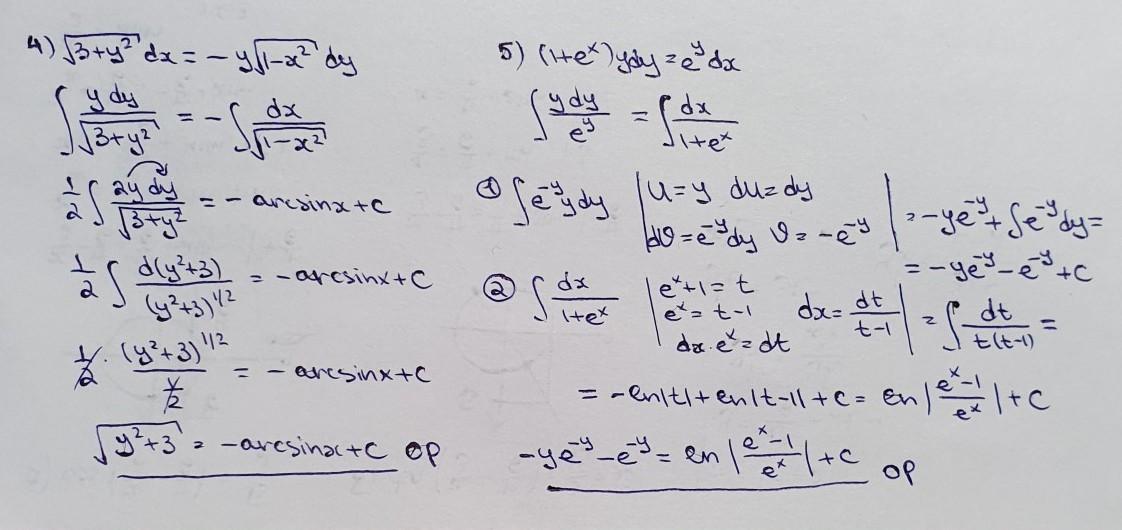 4) √(3+y²) dx = - y√(1-x²) dy
∫ y dy / √(3+y²) = - ∫ dx / √(1-x²)
1/2 ∫ 2y dy / √(3+y²) = - arcsinx + C
1/2 ∫ d(y²+3) / (y²+3)^(1/2) = - arcsinx + C
1/2 · (y²+3)^(1/2) / (1/2) = - arcsinx + C
√(y²+3) = - arcsinx + C ОР
5) (1+eˣ) y dy = e^y dx
∫ y dy / e^y = ∫ dx / (1+eˣ)
① ∫ e^(-y) y dy | u = y du = dy
dϑ = e^(-y) dy ϑ = - e^(-y) | = - ye^(-y) + ∫ e^(-y) dy =
= - ye^(-y) - e^(-y) + C
② ∫ dx / (1+eˣ) | eˣ+1 = t
eˣ = t-1 dx = dt / (t-1)
dx · eˣ = dt | = ∫ dt / (t(t-1)) =
= - ln|t| + ln|t-1| + C = ln |(eˣ-1) / eˣ| + C
- ye^(-y) - e^(-y) = ln |(eˣ-1) / eˣ| + C ОР